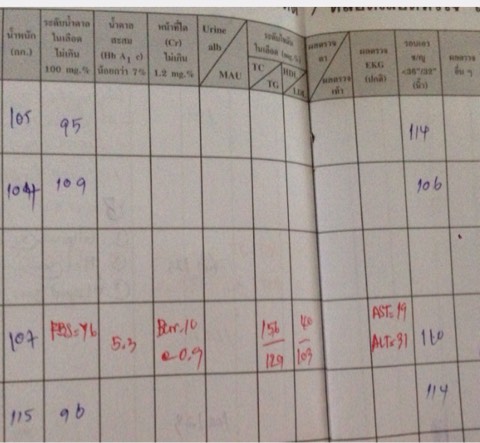 น้ำหนัก
(กก.)
ระดับน้ำตาล
ในเลือด
ไม่เกิน
100 mg.%
น้ำตาล
สะสม
(Hb A1 c)
น้อยกว่า 7%
หน้าที่ไต
(Cr)
ไม่เกิน
1.2 mg.%
Urine
alb
MAU
ระดับไขมัน
ในเลือด (mg.%)
TC
TG
HDL
LDL
ผลตรวจ
ตา
ผลตรวจ
เท้า
ผลตรวจ
EKG
(ปกติ)
รอบเอว
ช/ญ
<36"/32"
(นิ้ว)
ผลตรวจ
อื่น ๆ
105 95 114
104 109 106
107 FBS=96 5.3 Bun-10 156 40 AST=19 110
0.9 129 103 ALT=31
115 96 114